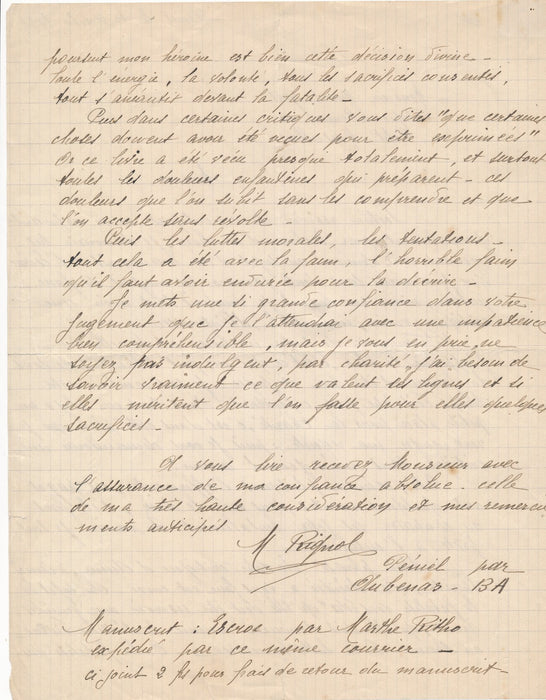 poursuit mon héroine est bien cette décision divine -
toute l'énergie, la volonté, tous les sacrifices consentis,
tout s'anéantit devant la fatalité -
Puis dans certaines critiques vous dites "que certaines
choses doivent avoir été vécues pour être exprimées"
Or ce livre a été vécu presque totalement, et surtout
toutes les douleurs enfantines qui préparent - ces
douleurs que l'on subit sans les comprendre et que
l'on accepte sans révolte -
Puis les luttes morales, les tentations -
tout cela a été avec la faim, l'horrible faim
qu'il faut avoir endurée pour la décrire -
Je mets une si grande confiance dans votre
jugement que je l'attendrai avec une impatience
bien compréhensible, mais je vous en prie, ne
soyez pas indulgent, par charité, j'ai besoin de
savoir vraiment ce que valent ces lignes et si
elles méritent que l'on fasse pour elles quelques
sacrifices -
A vous lire recevez Monsieur avec
l'assurance de ma confiance absolue celle
de ma très haute considération et mes remercie
ments anticipés
M Rignol
Péniel par
Aubenas - BA
Manuscrit : Escroc par Marthe Ritho
expédié par ce même courrier -
ci joint 2 frs pour frais de retour du manuscrit -